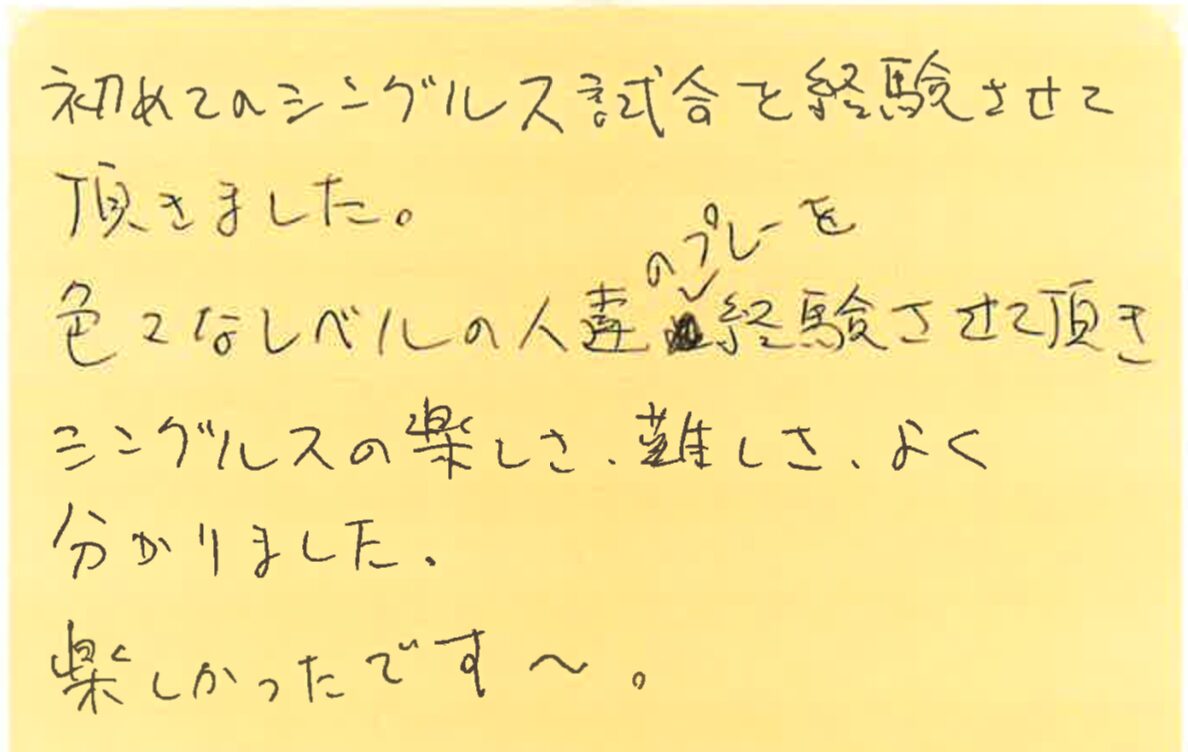 初めてのシングルス試合を経験させて
頂きました。
色々なレベルの人達のプレーを経験させて頂き
シングルスの楽しさ、難しさ、よく
分かりました。
楽しかったです〜。